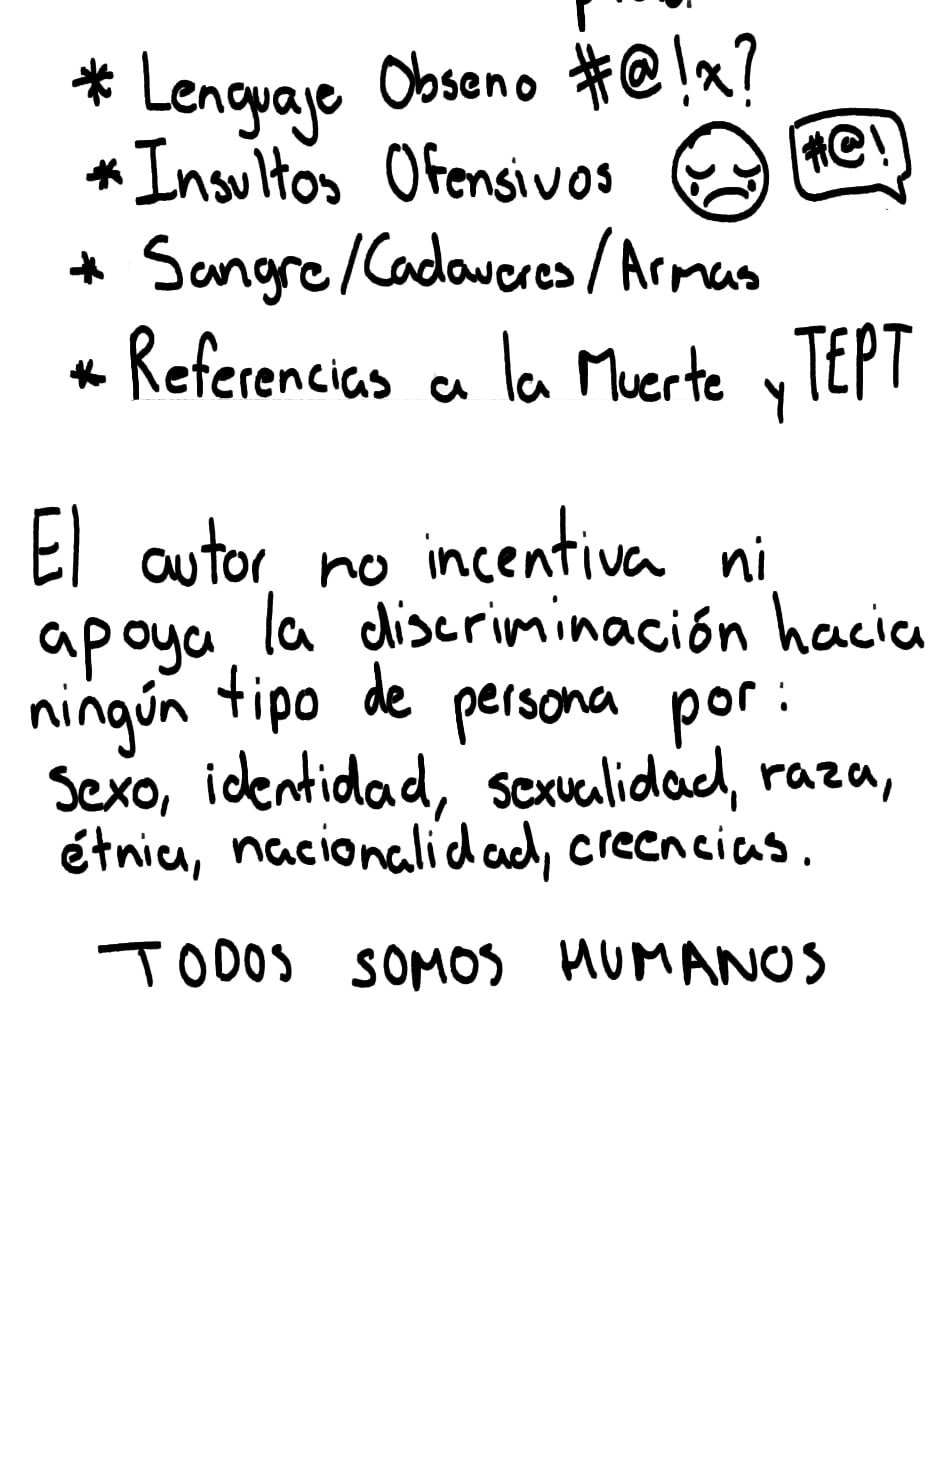 * Lenguaje Obseno #@!x?
* Insultos Ofensivos #@!
* Sangre/Cadaveres/Armas
* Referencias a la Muerte y TEPT
El autor no incentiva ni
apoya la discriminación hacia
ningún tipo de persona por:
sexo, identidad, sexualidad, raza,
étnia, nacionalidad, creencias.
TODOS SOMOS HUMANOS